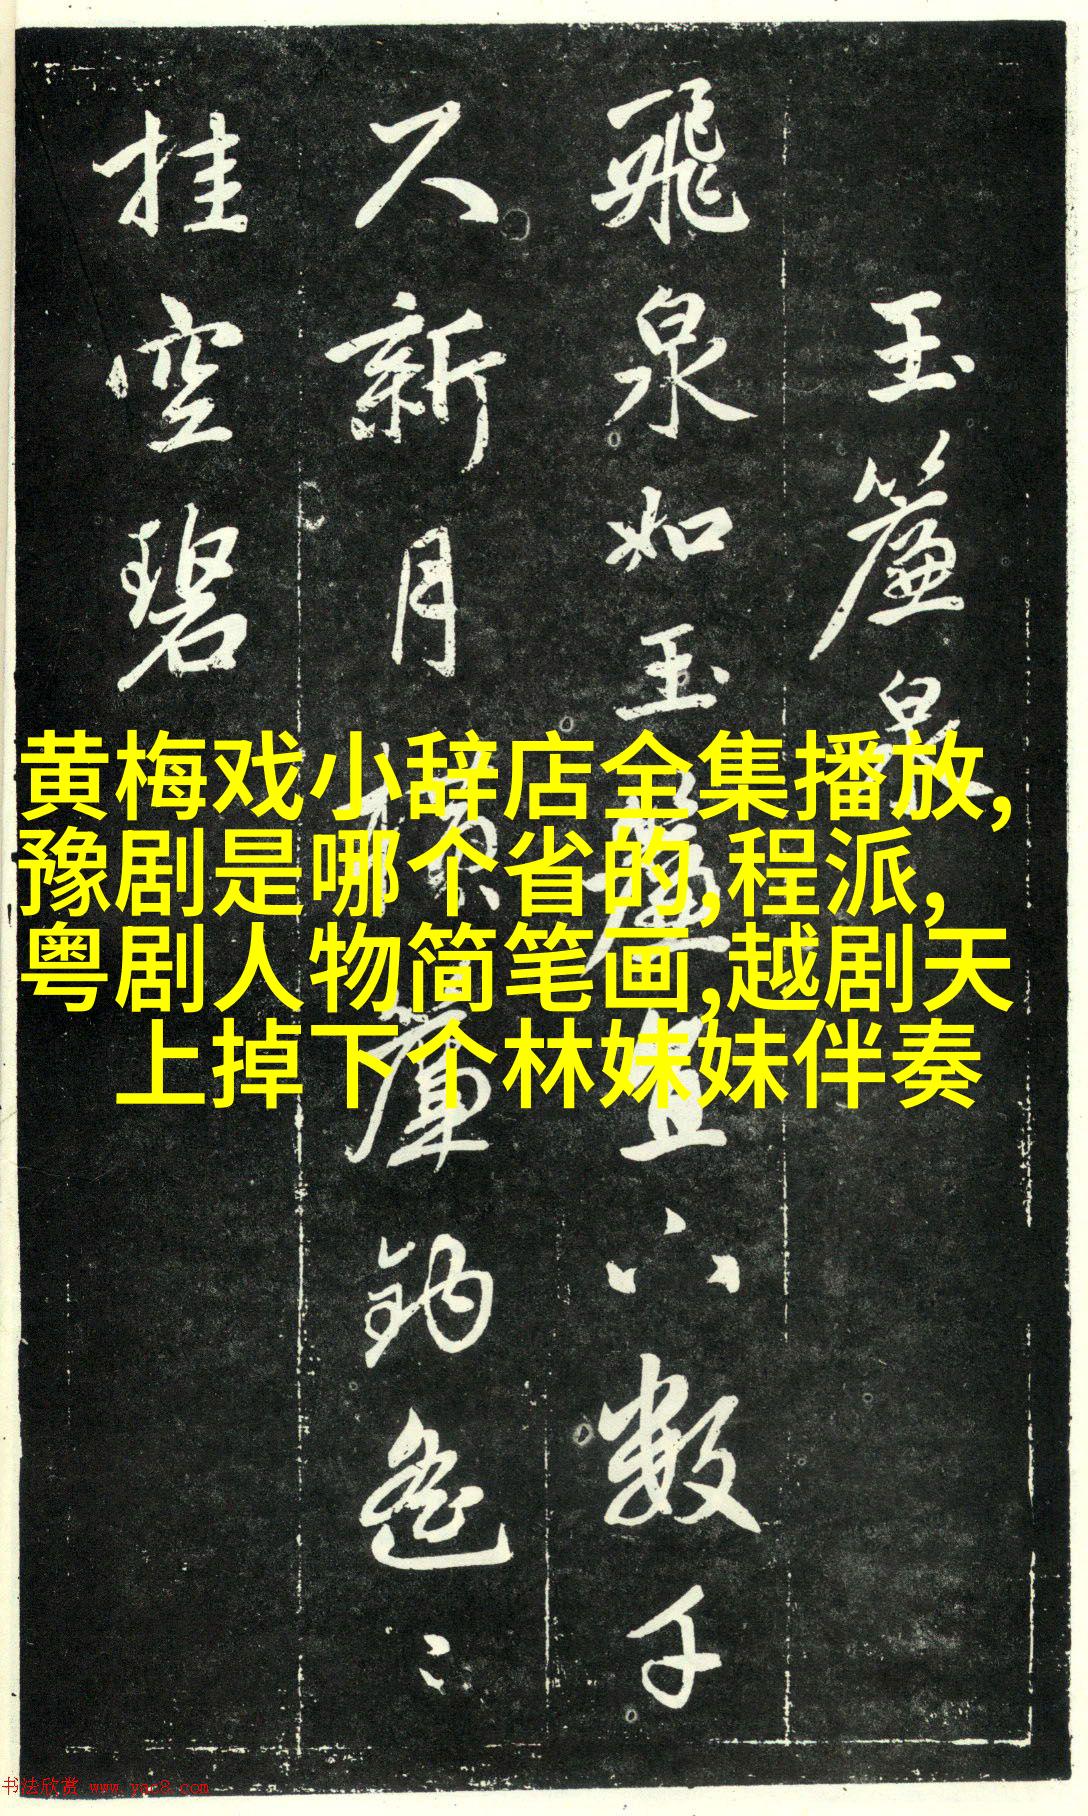 玉簾泉
飛泉如玉簾直下數千
尺新月橫簾鉤遙〻
挂空碧
黄梅戏小辞店全集播放,
豫剧是哪个省的,程派,
粤剧人物简笔画,越剧天
上掉下个林妹妹伴奏
书法欣赏 www.yac8.com